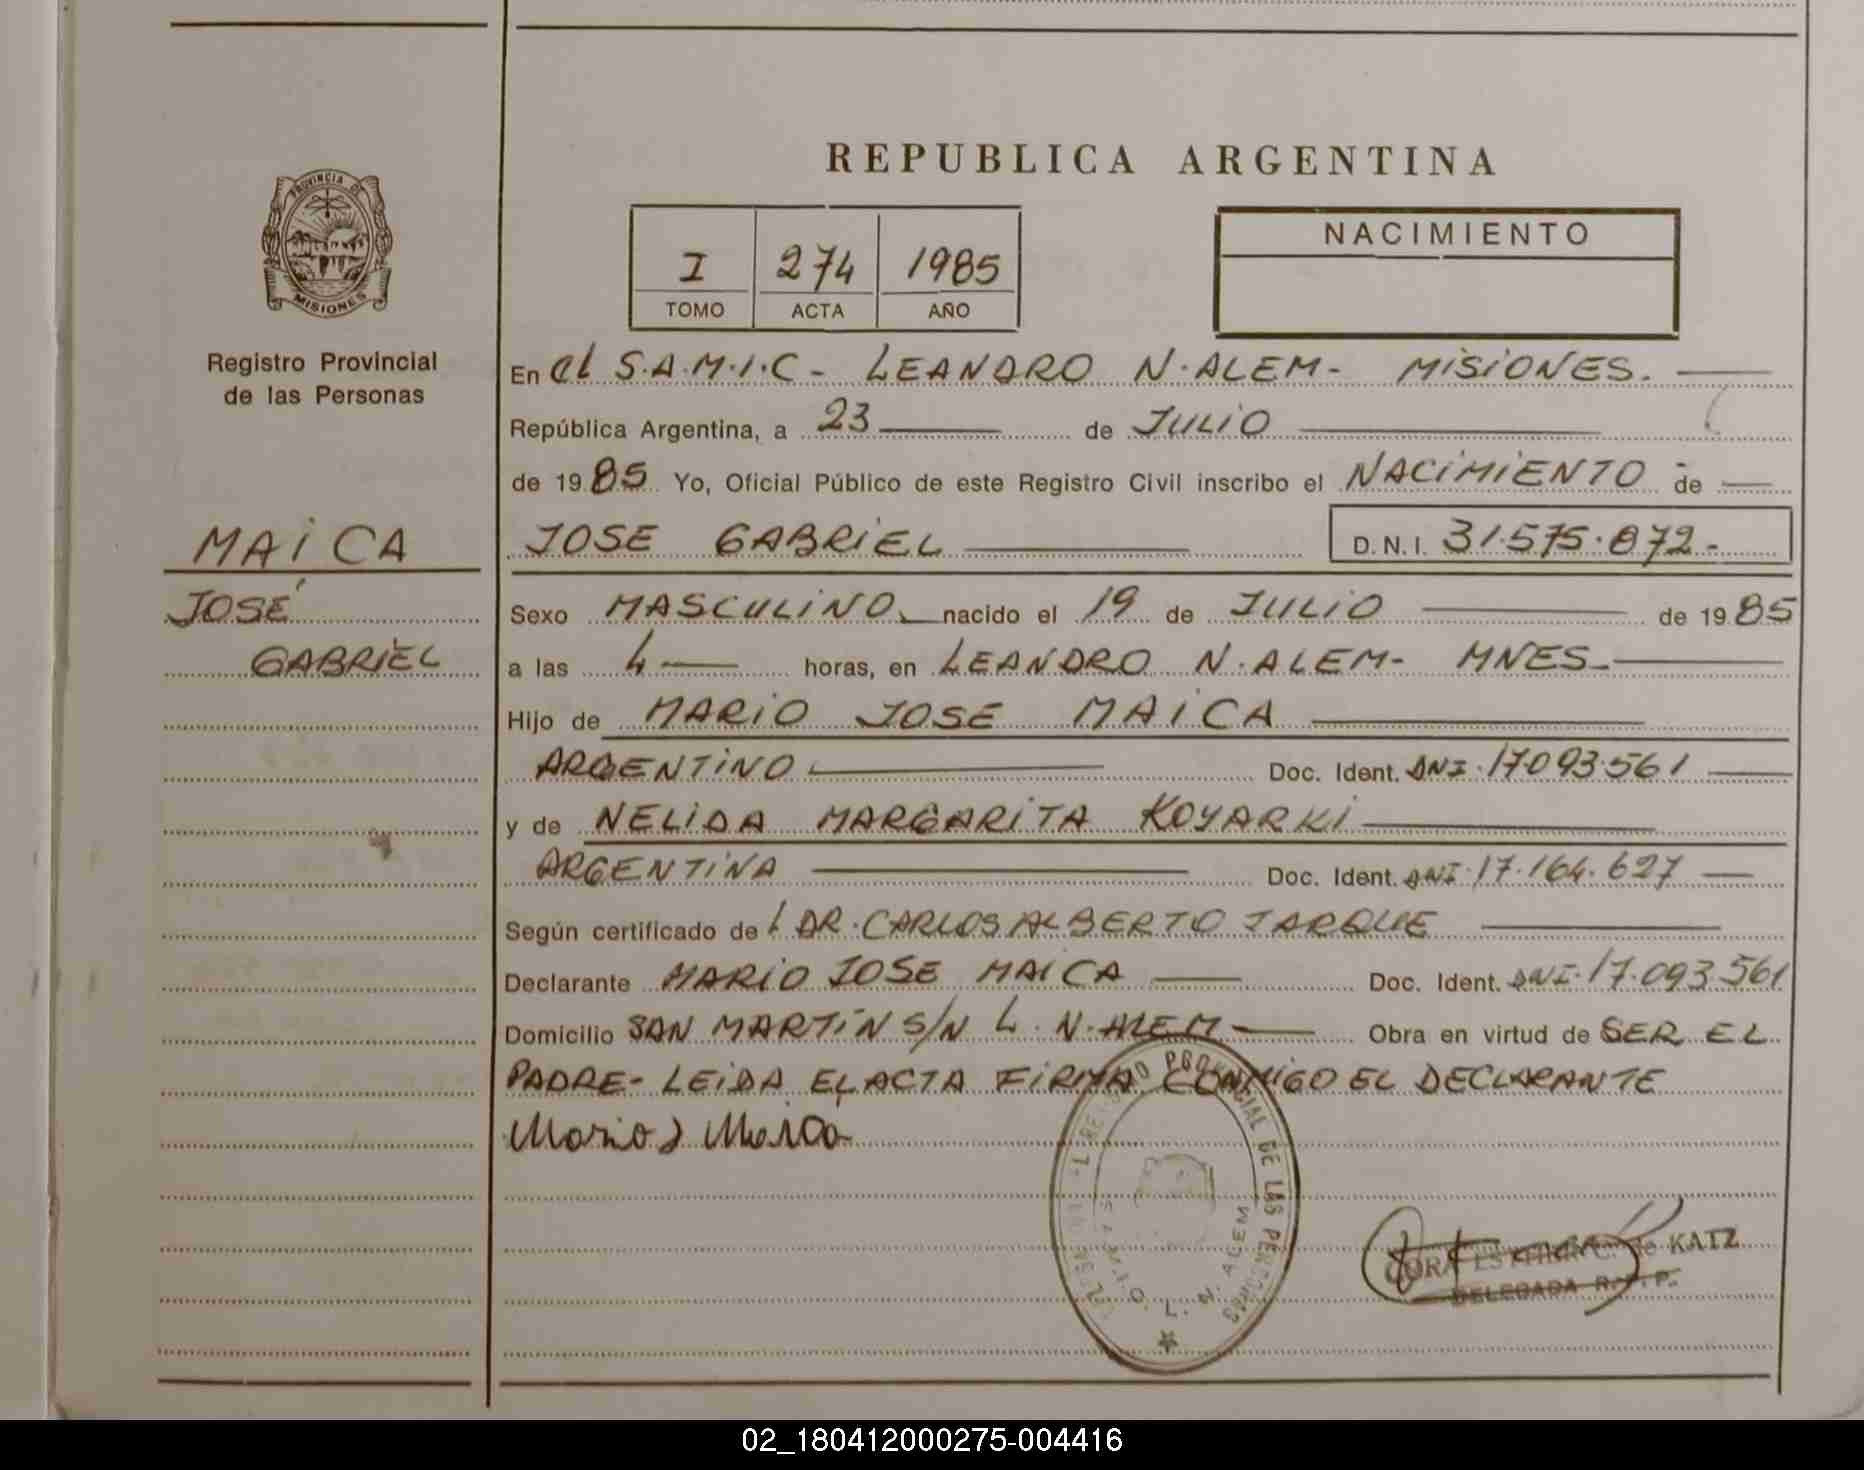 REPUBLICA ARGENTINA
PROVINCIA DE
MISIONES
Registro Provincial
de las Personas
I 274 1985
TOMO ACTA AÑO
NACIMIENTO
En el S.A.M.I.C- LEANDRO N. ALEM- MISIONES.
República Argentina, a 23 de JULIO
de 1985 Yo, Oficial Público de este Registro Civil inscribo el NACIMIENTO de
MAICA
JOSE GABRIEL D.N.I. 31.575.872-
JOSÉ
GABRIEL
Sexo MASCULINO nacido el 19 de JULIO de 1985
a las 4 horas, en LEANDRO N. ALEM- MNES-
Hijo de MARIO JOSE MAICA
ARGENTINO Doc. Ident. DNI. 17.093.561
y de NELIDA MARGARITA KOYARKI
ARGENTINA Doc. Ident. DNI. 17.164.627
Según certificado del DR. CARLOS ALBERTO JARQUE
Declarante MARIO JOSE MAICA Doc. Ident. DNI. 17.093.561
Domicilio SAN MARTÍN S/N L. N. ALEM Obra en virtud de SER EL
PADRE- LEIDA EL ACTA FIRMA CONMIGO EL DECLARANTE
Mario J Maica
PROVINCIAL DE LAS PERSONAS
L. N. ALEM
KATZ
DELEGADA R.P.P.
02_180412000275-004416